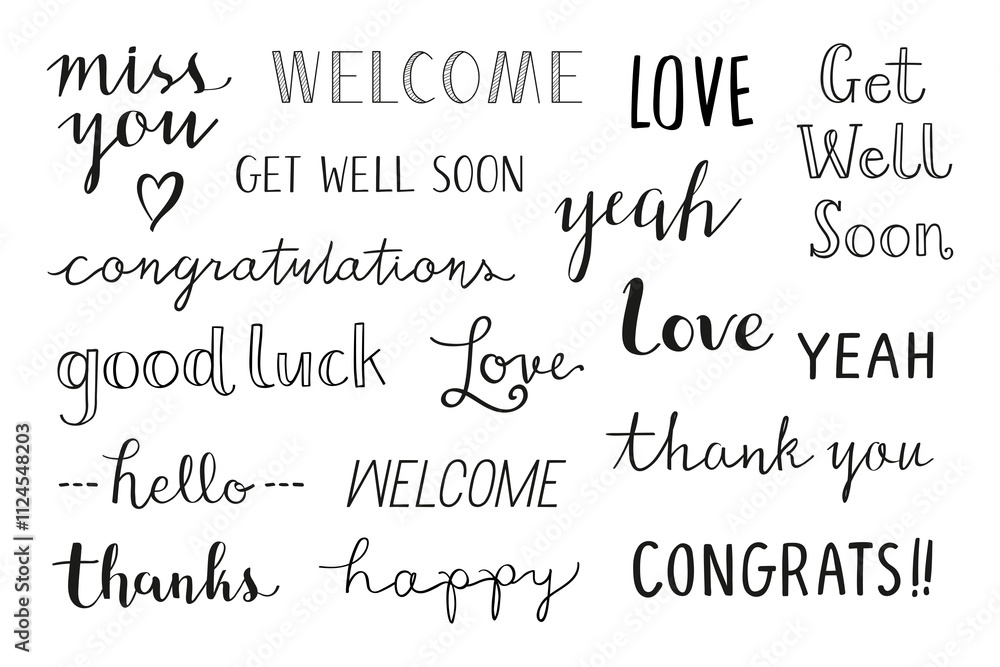 miss
you
WELCOME
LOVE
Get
Well
Soon
GET WELL SOON
yeah
congratulations
Love
good luck
Love
YEAH
thank you
--- hello ---
WELCOME
thanks
happy
CONGRATS!!
Adobe Stock | #1124548203